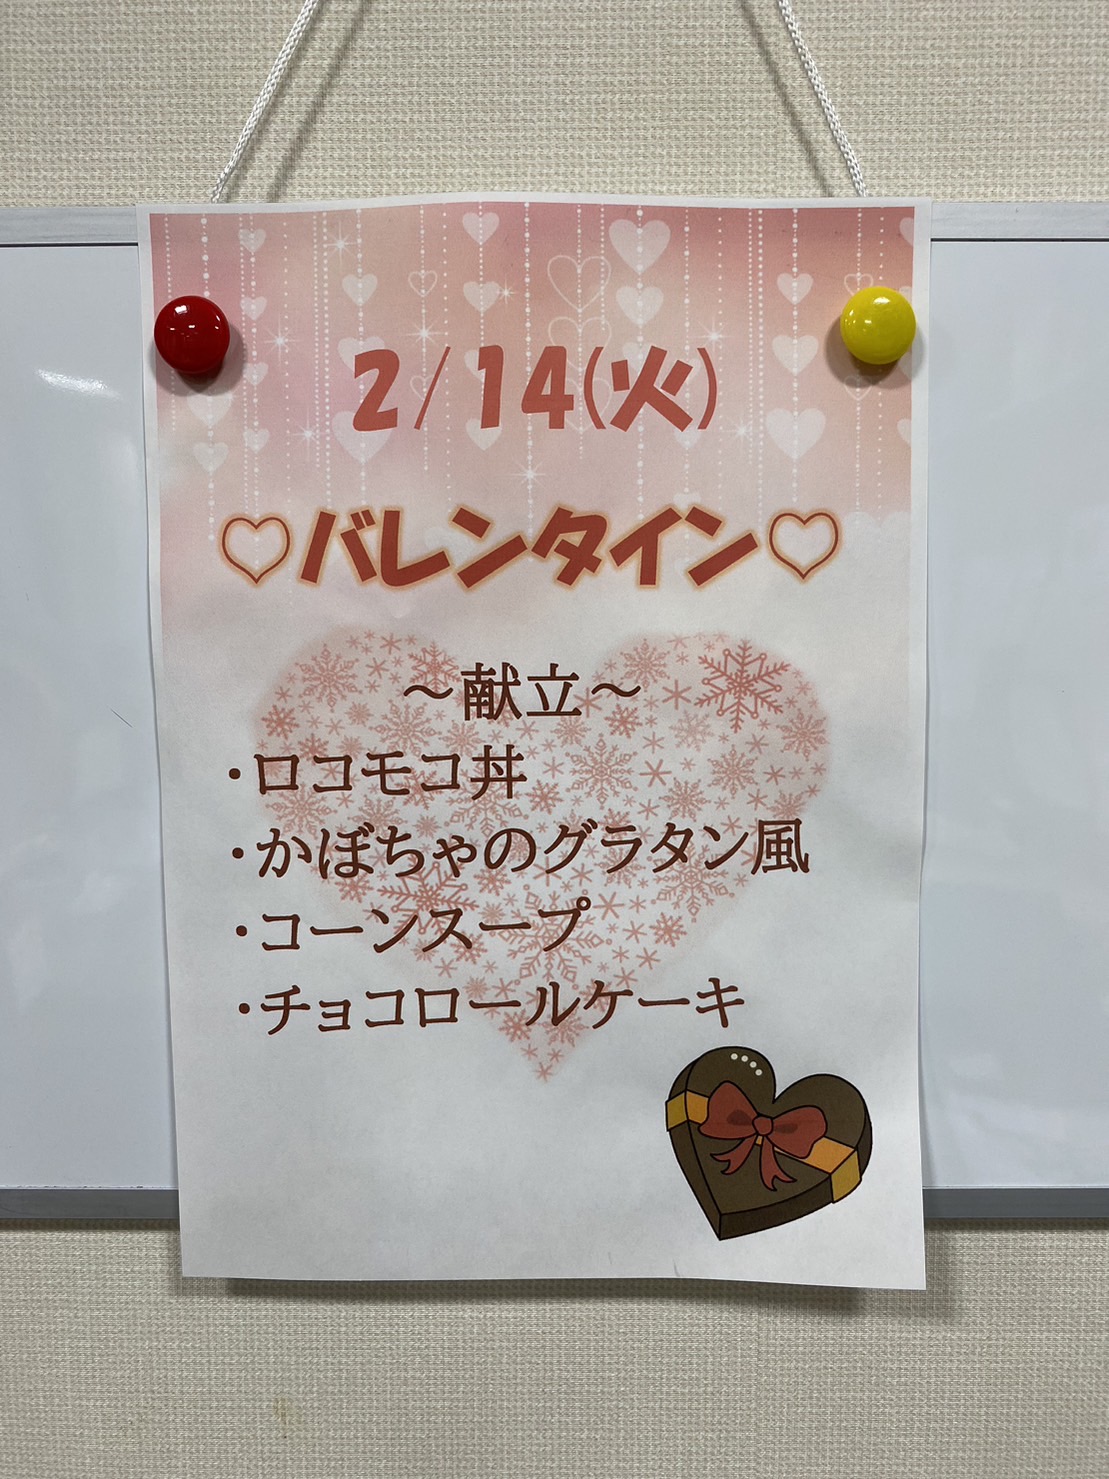 2/14(火)
♡バレンタイン♡
～献立～
・ロコモコ丼
・かぼちゃのグラタン風
・コーンスープ
・チョコロールケーキ